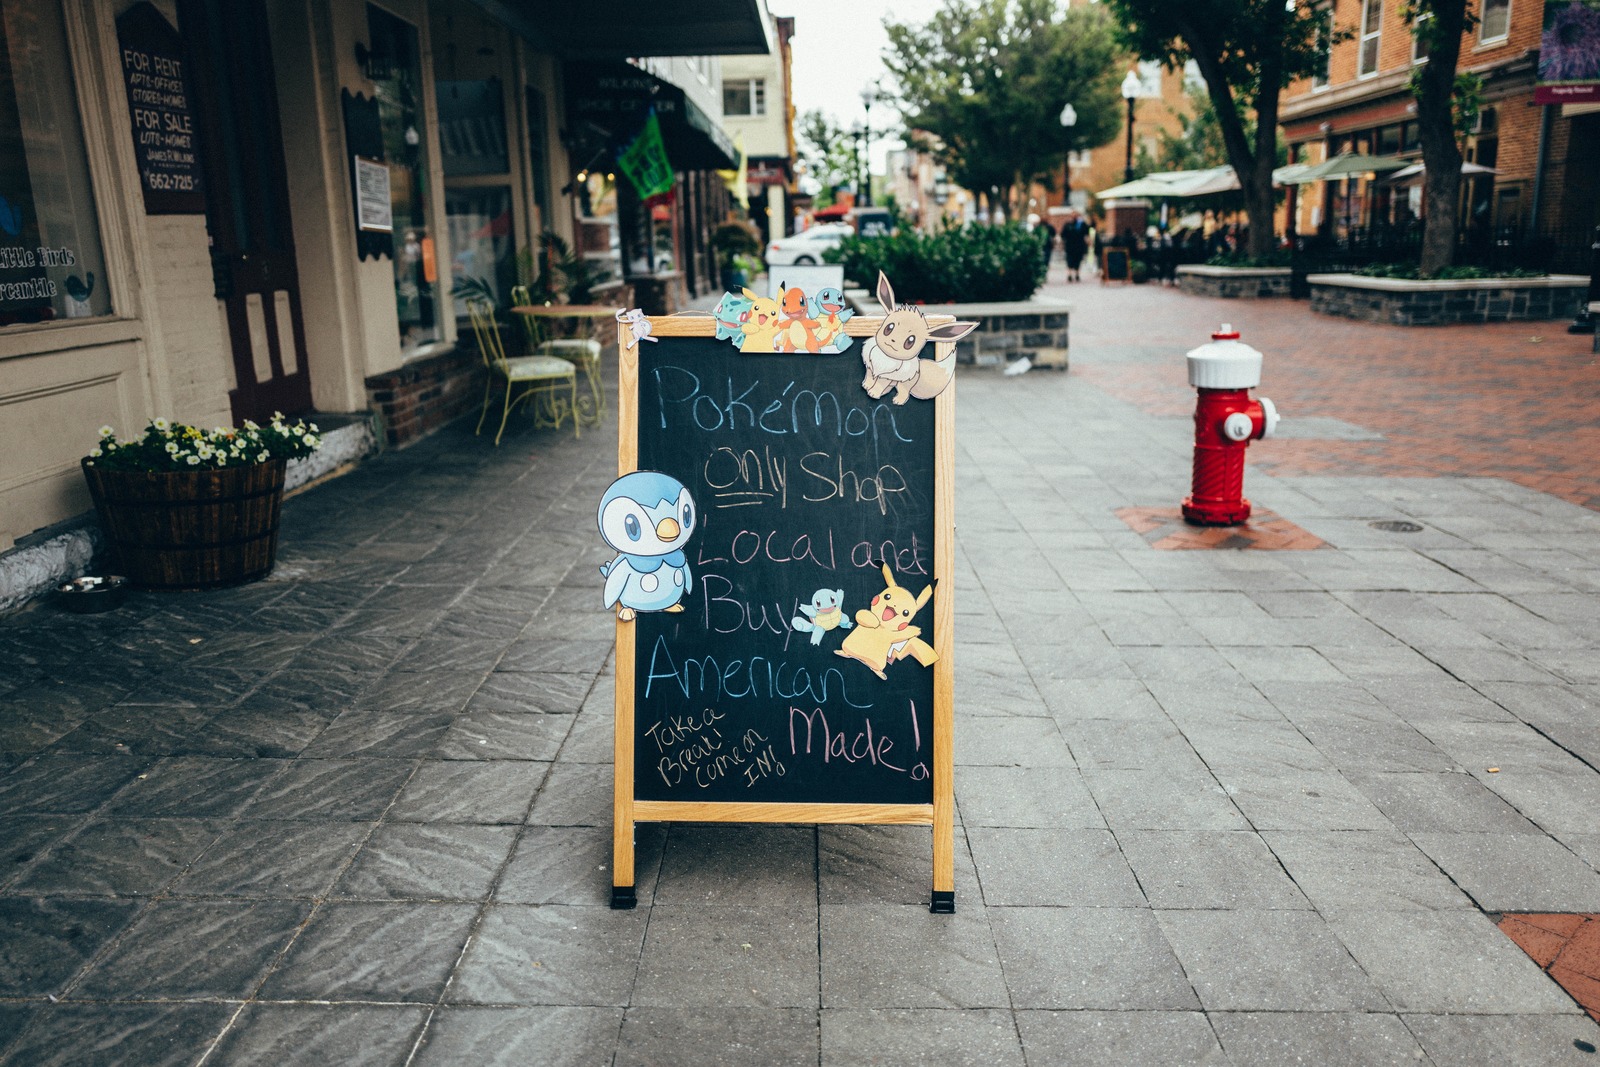 FOR RENT
APTS-OFFICES
STORES-HOMES
FOR SALE
LOTS-HOMES
JAMES R. WILKINS
662-7215
Little Birds
Mercantile
WILKINS
SHOE CENTER
Pokémon
Only Shop
Local and
Buy
American
Made!
Take a
Break!
Come on
IN!